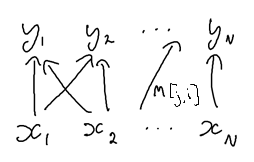 y₁ y₂ ... yₙ
m[j,i]
x₁ x₂ ... xₙ